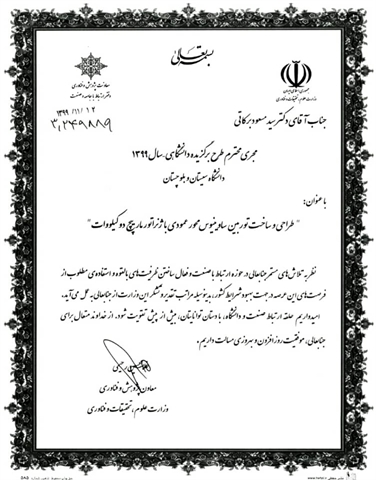 بسمه تعالی
جمهوری اسلامی ایران
وزارت علوم، تحقیقات و فناوری
معاونت پژوهش و فناوری
دفتر ارتباط با جامعه و صنعت
۱۳۹۹/۱۱/۱۲
۳,۲۴۹۸۸۹
جناب آقای دکتر سید مسعود برکاتی
مجری محترم طرح برگزیده دانشگاهی سال ۱۳۹۹
دانشگاه سیستان و بلوچستان
با عنوان:
"طراحی و ساخت توربین ساونیوس محور عمودی با ژنراتور مارپیچ دو کیلووات"
نظر به تلاش های مستمر جنابعالی در حوزه ارتباط با صنعت و فعال ساختن ظرفیت های بالقوه و استفاده ی مطلوب از
فرصت های این عرصه در جهت بهبود شرایط کشور، بدینوسیله مراتب تقدیر و تشکر این وزارت از جنابعالی به عمل می آید.
امیدواریم حلقه ارتباط صنعت و دانشگاه، با دستان توانایتان، بیش از پیش تقویت شود. از خداوند متعال برای
جنابعالی، موفقیت روزافزون و بهروزی مسالت داریم.
معاون پژوهش و فناوری
وزارت علوم، تحقیقات و فناوری